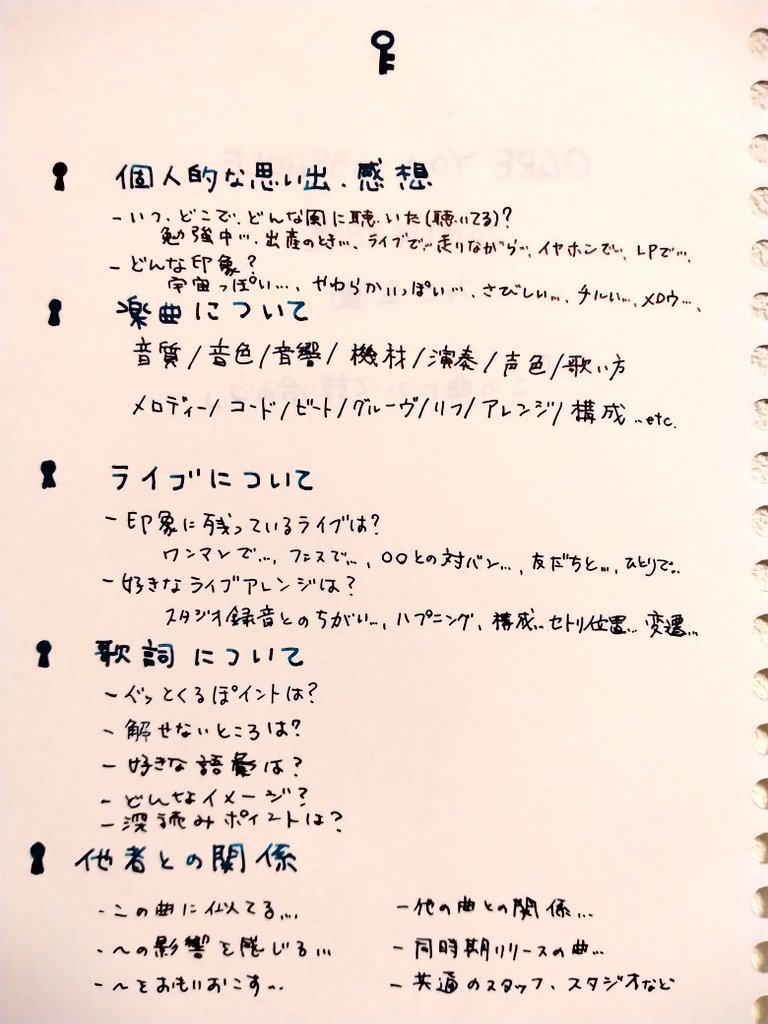 個人的な思い出、感想
- いつ、どこで、どんな風に聴いた(聴いてる)?
勉強中…、出産のとき…、ライブで…走りながら…、イヤホンで…、LPで…、
- どんな印象?
宇宙っぽい…、やわらかいっぽい…、さびしい…、チルい…、メロウ…、
楽曲について
音質/音色/音響/機材/演奏/声色/歌い方
メロディー/コード/ビート/グルーヴ/リフ/アレンジ/構成…etc.
ライブについて
- 印象に残っているライブは?
ワンマンで…、フェスで…、○○との対バン…、友だちと…、ひとりで…
- 好きなライブアレンジは?
スタジオ録音とのちがい…、ハプニング、構成…セトリ位置…変遷…
歌詞について
- ぐッとくるぽイントは?
- 解せないところは?
- 好きな語彙は?
- どんなイメージ?
- 深読みポイントは?
他者との関係
- この曲に似てる…
- 〜の影響を感じる…
- 〜をおもいおこす…
- 他の曲との関係…
- 同時期リリースの曲…
- 共通のスタッフ、スタジオなど